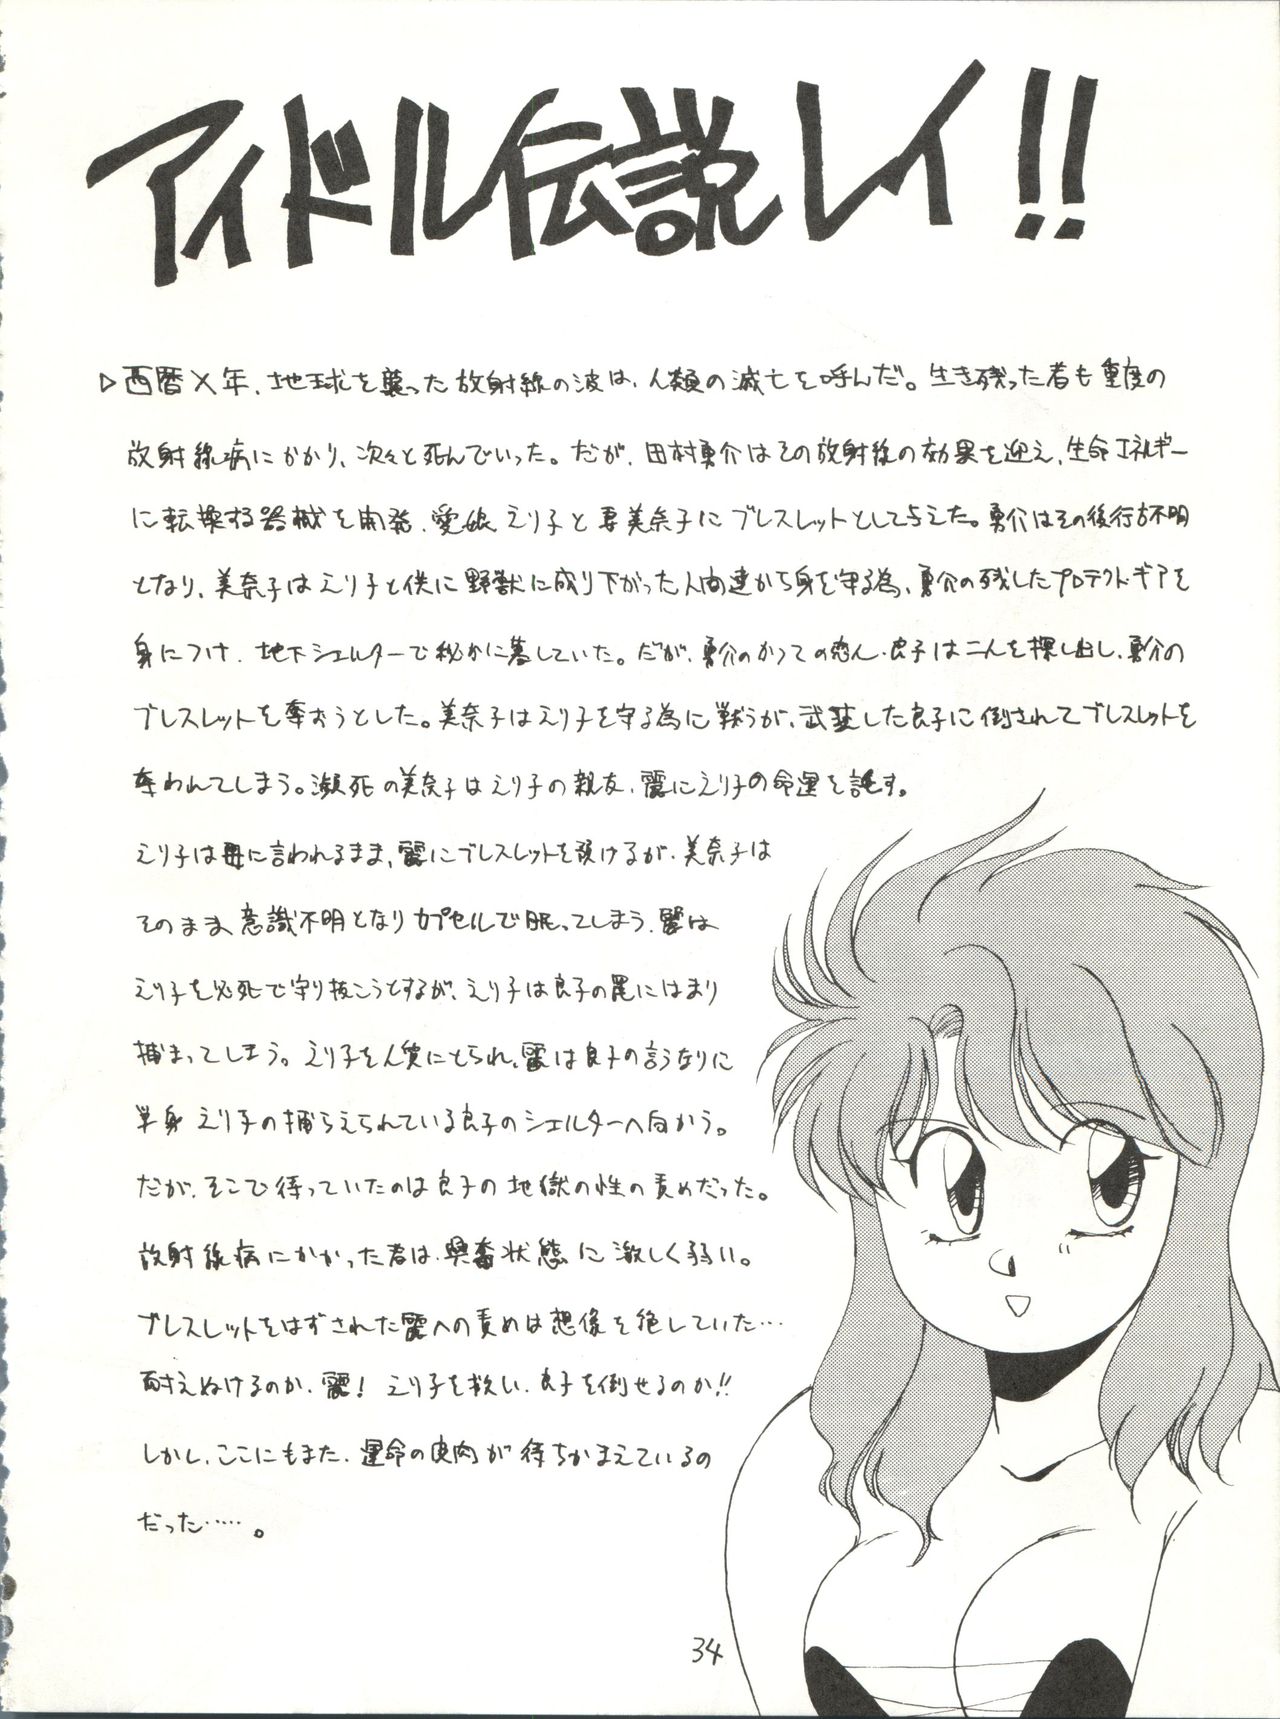 アイドル伝説レイ!!
▷西暦X年、地球を襲った放射線の波は、人類の滅亡を呼んだ。生き残った者も重度の
放射線病にかかり、次々と死んでいった。だが、田村勇介はその放射線の効果を迎え、生命エネルギー
に転換する器械を開発、愛娘えり子と妻美奈子にブレスレットとして与えた。勇介はその後行方不明
となり、美奈子はえり子と供に野獣に成り下がった人間達から身を守る為、勇介の残したプロテクト・ギアを
身につけ、地下シェルターで秘かに暮していた。だが、勇介のかつての恋人・良子は二人を探し出し、勇介の
ブレスレットを奪おうとした。美奈子はえり子を守る為に戦うが、武装した良子に倒されてブレスレットを
奪われてしまう。瀕死の美奈子はえり子の親友、麗にえり子の命運を託す。
えり子は母に言われるまま、麗にブレスレットを預けるが、美奈子は
そのまま意識不明となりカプセルで眠ってしまう。麗は
えり子を必死で守り抜こうとするが、えり子は良子の罠にはまり
捕まってしまう。えり子を人質にとられ、麗は良子の言うなりに
単身えり子の捕らえられている良子のシェルターへ向かう。
だが、そこで待っていたのは良子の地獄の性の責めだった。
放射線病にかかった者は、興奮状態に激しく弱い。
ブレスレットをはずされた麗への責めは想像を絶していた…
耐えぬけるのか、麗！えり子を救い、良子を倒せるのか!!
しかし、ここにもまた、運命の皮肉が待ちかまえているの
だった……。
34